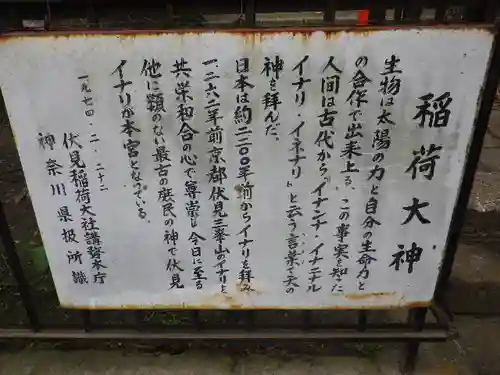 稲荷大神
生物は太陽の力と自分の生命力と
の合作で出来上る。この事実を知った
人間は古代から「イナンナ・イナニテル
イナリ・イネナリ」と云う言葉で天の
神を拝んだ。
日本は約二二〇〇年前からイナリを拝み
一二六二年前京都伏見三峯山のイナリと
共栄和合の心で尊崇し今日に至る
他に類のない最古の庶民の神で伏見
イナリが本宮となっている。
一九七四・二・二十二
伏見稲荷大社講務本庁
神奈川県扱所識